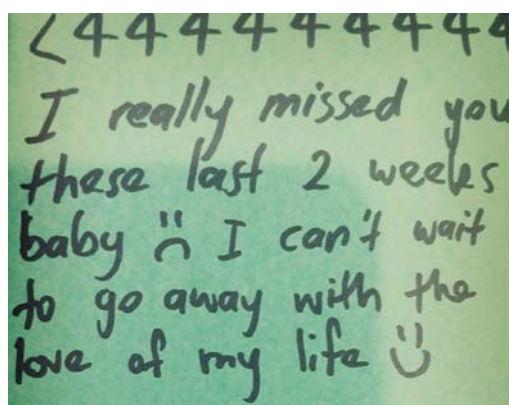 <444444444
I really missed you
these last 2 weeks
baby :( I can't wait
to go away with the
love of my life :)